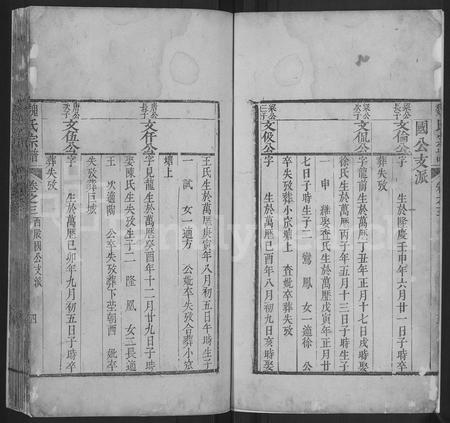 國公支派
梁公長子
文倫公
字 生於隆慶壬申年六月廿一日子時卒
葬失攷
梁公次子
文侃公
字龍前生於萬歷丁丑年正月十七日戌時娶
徐氏生於萬歷丙子年五月十三日子時生子
一 申 繼娶查氏生於萬歷戊寅年正月廿
七日子時生子二 鸞 鳳 女一適徐 公
卒失攷葬小宸塘上 查妣卒葬失攷
梁公三子
文伋公
字 生於萬歷己酉年八月初九日亥時娶
王氏生於萬歷庚寅年八月初五日午時生子
一 試 女一適方 公妣卒失攷合葬小宸
塘上
唐公長子
文仟公
字見龍生於萬歷癸酉年十二月廿九日子時
娶陳氏生卒失攷生子二 隆 鳳 女三長適
王 次適陶 公卒失攷葬下茔朝酉 妣卒
失攷葬巨城
唐公次子
文伍公
字 生於萬歷己卯年九月初五日子時卒
葬失攷
魏氏宗譜
卷之三
西嚴國公支派
四